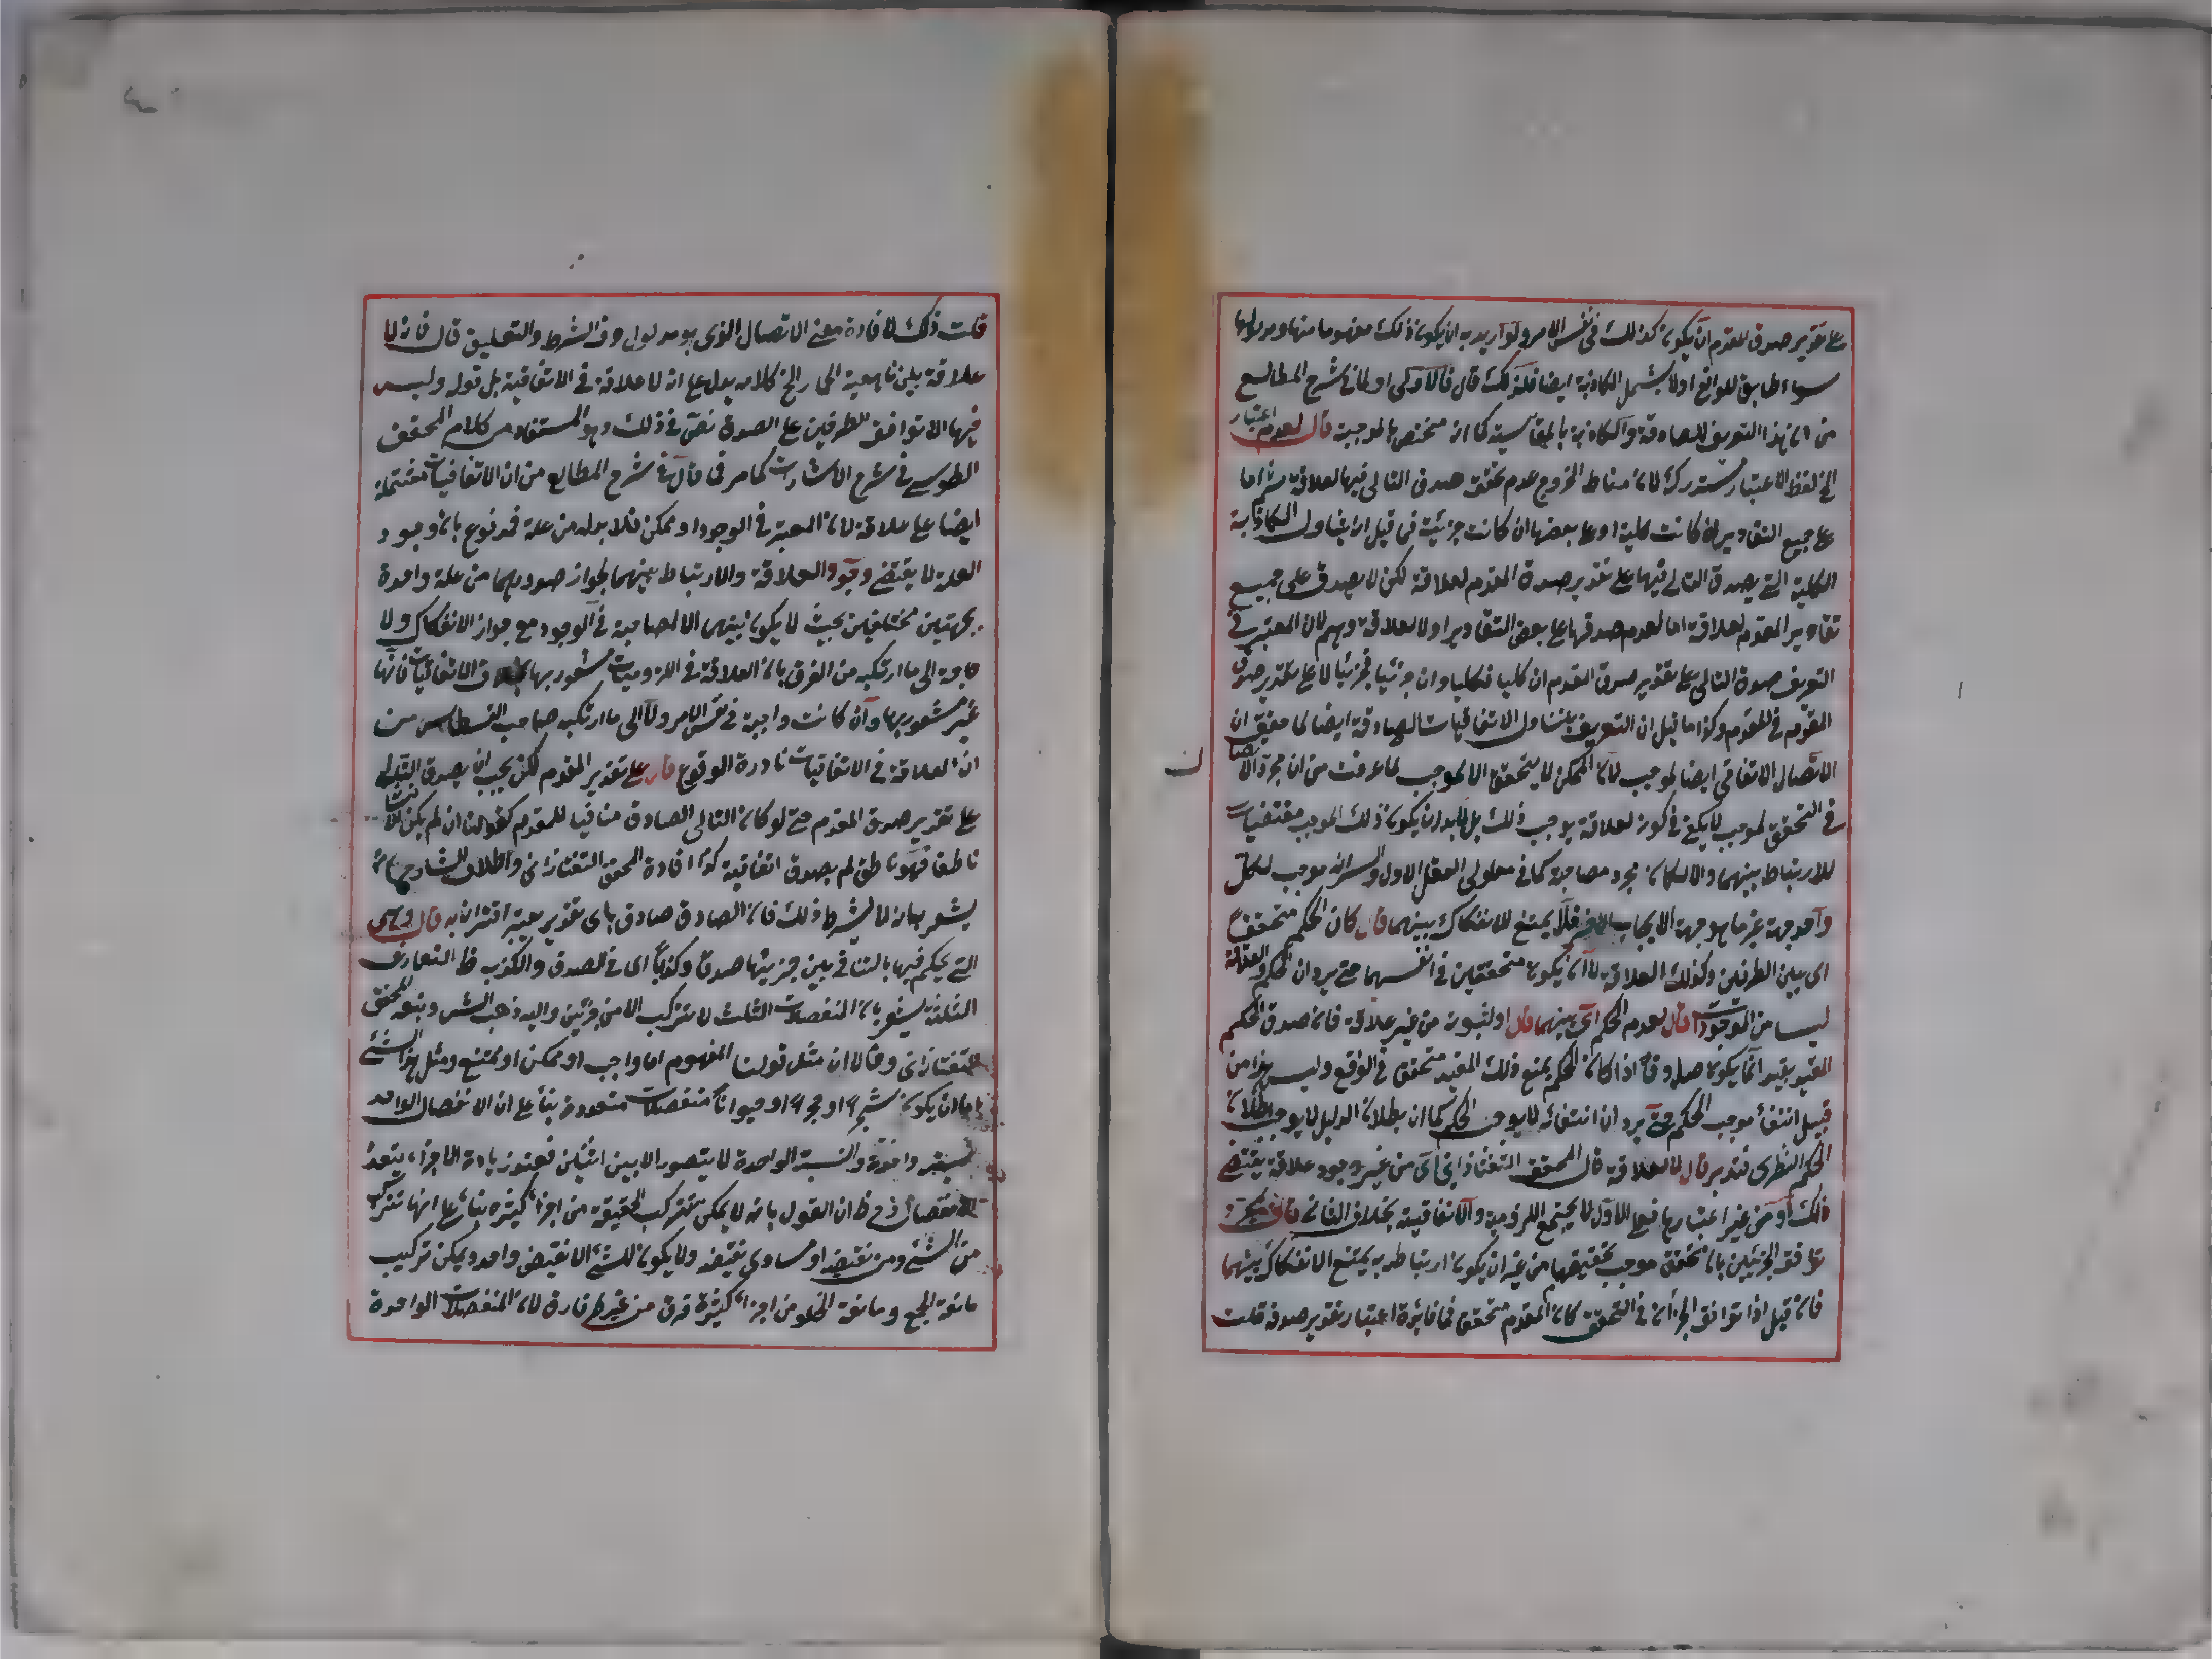 على تقدير صدق المقدم ان يكون كذلك في نفس الامر ولو اريد به ان يكون ذلك مفهوما منها ومدلولها
سواء طابق للواقع اولا يشمل الكاذبة ايضا فلذلك قال فالاولى اولما في شرح المطالع
من ان هذا التعريف للصادقة والكاذبة بالمقايسة كما انه مختص بالموجبة قال لعدم اعتبار
الخ لفظ الاعتبار مستدرك لان مناط الخروج عدم تحقق صدق التالى فيها لعلاقة
على جميع التقادير ان كانت كلية او على بعضها ان كانت جزئية فما قيل ان يتناول الكاذبة
الكلية التى يصدق التالى فيها على تقدير صدق المقدم لعلاقة لكن لا يصدق على جميع
تقادير المقدم لعلاقة اما لعدم صدقها على بعض التقادير اولا لعلاقة وهم لان المعتبر في
التعريف صدق التالى على تقدير صدق المقدم ان كليا فكليا وان جزئيا فجزئيا لا على تقدير صدق
المقدم في المقدم وكذا ما قيل ان التعريف يتناول الاتفاقيات الصادقة ايضا لما حقق ان
الاتصال الاتفاقي ايضا لموجب لان الممكن لا يتحقق الا لموجب لما عرفت من ان مجرد الاتصال
في التحقق لموجب لا يكفى في كون لعلاقة يوجب ذلك بل لابد ان يكون ذلك الموجب مقتضيا
للارتباط بينهما والا لكان مجرد مصاحبة كما في معلولى العقل الاول والسر انه موجب لكل
واحد جهة غير ما هو جهة الايجاب الاخر فلا يمتنع الانفكاك بينهما قال كان الحكم متحققا
اى بين الطرفين وكذلك العلاقة لا ان يكون متحققين في انفسهما حتى يرد ان الحكم والعلاقة
ليسا من الموجودات قال لعدم الحكم اى بينهما قال او لثبوته من غير علاقة فان صدق الحكم
المقيد بقيد انما يكون صادقا اذا كان الحكم مع ذلك المقيد متحقق في الواقع وليس هذا من
قبيل انتفاء موجب الحكم حتى يرد ان انتفائه لا يوجب الحكم كما ان بطلان الدليل لا يوجب بطلان
الحكم النظرى فتدبر قال لا لعلاقة قال المحقق التفتازانى اى من غير وجود علاقة يقتضى
ذلك او من غير اعتبارها فعلى الاول لا يجتمع اللزومية والاتفاقية بخلاف الثانى قال بمجرد
توافق الجزئين بان تحقق موجب تحقيقهما من غير ان يكون ارتباط به يمتنع الانفكاك بينهما
فان قيل اذا توافق الجزآن في التحقق كان المقدم متحقق فما فائدة اعتبار تقدير صدقه قلت
قلت ذلك لافادة معنى الاتصال الذى هو مدلول حرف الشرط والتعليق قال فانه لا
علاقة بين ناهقية الحمار الخ كلامه يدل على انه لا علاقة في الاتفاقية بل قوله وليس
فيها الا توافق الطرفين على الصدق نص في ذلك وهو المستفاد من كلام المحقق
الطوسى في شرح الاشارات كما مر فما قال في شرح المطالع من ان الاتفاقيات مشتملة
ايضا على علاقة لان المعية في الوجود امر ممكن فلا بد له من علة فمدفوع بان وجود
العلة لا يقتضى وجود العلاقة والارتباط بينهما لجواز صدورهما من علة واحدة
بجهتين مختلفين بحيث لا يكون بينهما الا المصاحبة في الوجود مع جواز الانفكاك ولا
حاجة الى ما ارتكبه من الفرق بان العلاقة في اللزوميات مشعور بها بخلاف الاتفاقيات فانها
غير مشعور بها وان كانت واجبة في نفس الامر ولا الى ما ارتكب صاحب القسطاس من
ان العلاقة في الاتفاقيات نادرة الوقوع قال على تقدير المقدم لكن يجب ان يصدق التالى
على تقدير صدق المقدم حتى لو كان التالى الصادق منافيا للمقدم كقولنا ان لم يكن الانسان
ناطقا فهو ناطق لم يصدق اتفاقية كذا افاده المحقق التفتازانى واطلاق الشارح
يشعر بانه لا يشترط ذلك فان الصادق صادق باى تقدير يعتبر اقترانه به قال وهى
التى يحكم فيها بالتنافى بين جزئيها صدقا وكذبا اى في الصدق والكذب ظ التعاريف
الثلثة يشعر بان المنفصلات الثلث لا تتركب الا من جزئين واليه ذهب الشيخ وتبعه المحقق
التفتازانى وقالا ان مثل قولنا المفهوم اما واجب او ممكن او ممتنع ومثل هذا الشئ
اما ان يكون شجرا او حجرا او حيوانا منفصلات متعددة بناء على ان الانفصال الواحد
نسبة واحدة والنسبة الواحدة لا يتصور الا بين اثنين فعند زيادة الاجزاء يتعدد
الانفصال فما ظ ان القول بانه لا يمكن تتركب الحقيقية من اجزاء كثيرة بناء على انها تتركب
من الشئ ومن نقيضه او مساوى نقيضه ولا يكون للشئ الا نقيض واحد ويمكن تركيب
مانعة الجمع ومانعة الخلو من اجزاء كثيرة فرق من غير فارق لان المنفصلات الواحدة